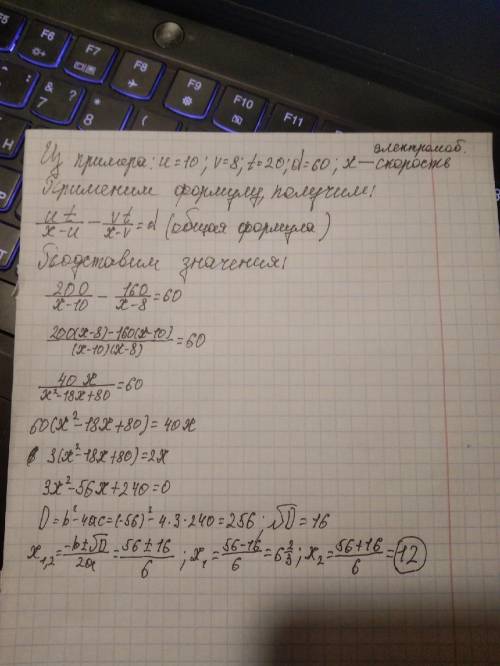 F5
F6
F7
F8
F9
F10
F11
&
7
8
электромоб.
Из примера: u=10; v=8; t=20; d=60; x — скорость
Применим формулу, получим:
ut/(x-u) - vt/(x-v) = d (общая формула)
Подставим значения:
200/(x-10) - 160/(x-8) = 60
(200(x-8)-160(x-10))/((x-10)(x-8)) = 60
40x/(x²-18x+80) = 60
60(x²-18x+80)=40x
3(x²-18x+80)=2x
3x²-56x+240=0
D=b²-4ac=(-56)²-4·3·240=256; √D=16
x₁,₂=(-b±√D)/2a=(56±16)/6; x₁=(56-16)/6=6 2/3; x₂=(56+16)/6=12